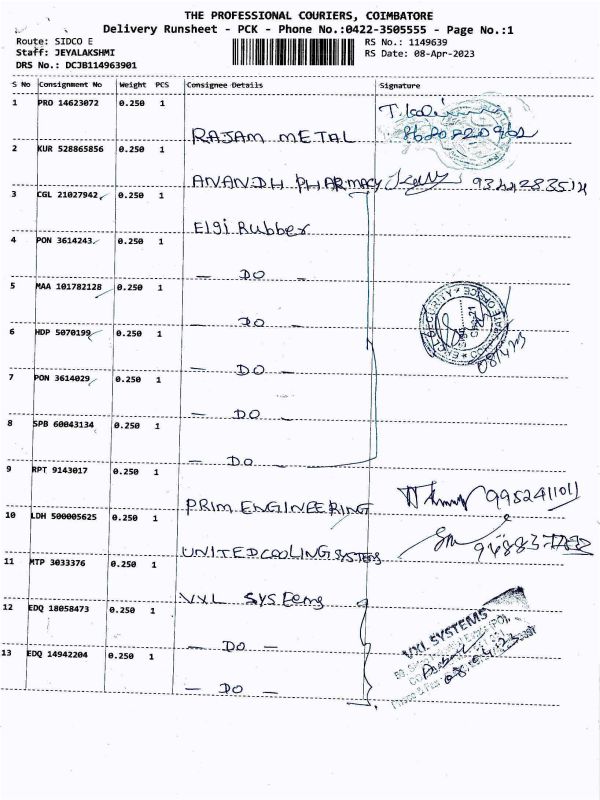 THE PROFESSIONAL COURIERS, COIMBATORE
Delivery Runsheet - PCK - Phone No.:0422-3505555 - Page No.:1
Route: SIDCO E RS No.: 1149639
Staff: JEYALAKSHMI RS Date: 08-Apr-2023
DRS No.: DCJB114963901
S No Consignment No Weight PCS Consignee Details Signature
1 PRO 14623072 0.250 1
RAJAM METAL
2 KUR 528865856 0.250 1
ANANDH PHARMACY
3 CGL 21027942 0.250 1
Elgi Rubber
4 PON 3614243 0.250 1
— DO —
5 MAA 101782128 0.250 1
— DO —
6 HDP 5070199 0.250 1
— DO —
08/4/23
7 PON 3614029 0.250 1
— DO —
8 SPB 60043134 0.250 1
— DO —
9 RPT 9143017 0.250 1
PRIM ENGINEERING 9952411011
10 LDH 500005625 0.250 1
UNITED COOLING SYSTEMS
11 MTP 3033376 0.250 1
VXL SYSTEMS
12 EDQ 18058473 0.250 1
VXL SYSTEMS
— DO —
13 EDQ 14942204 0.250 1
— DO —